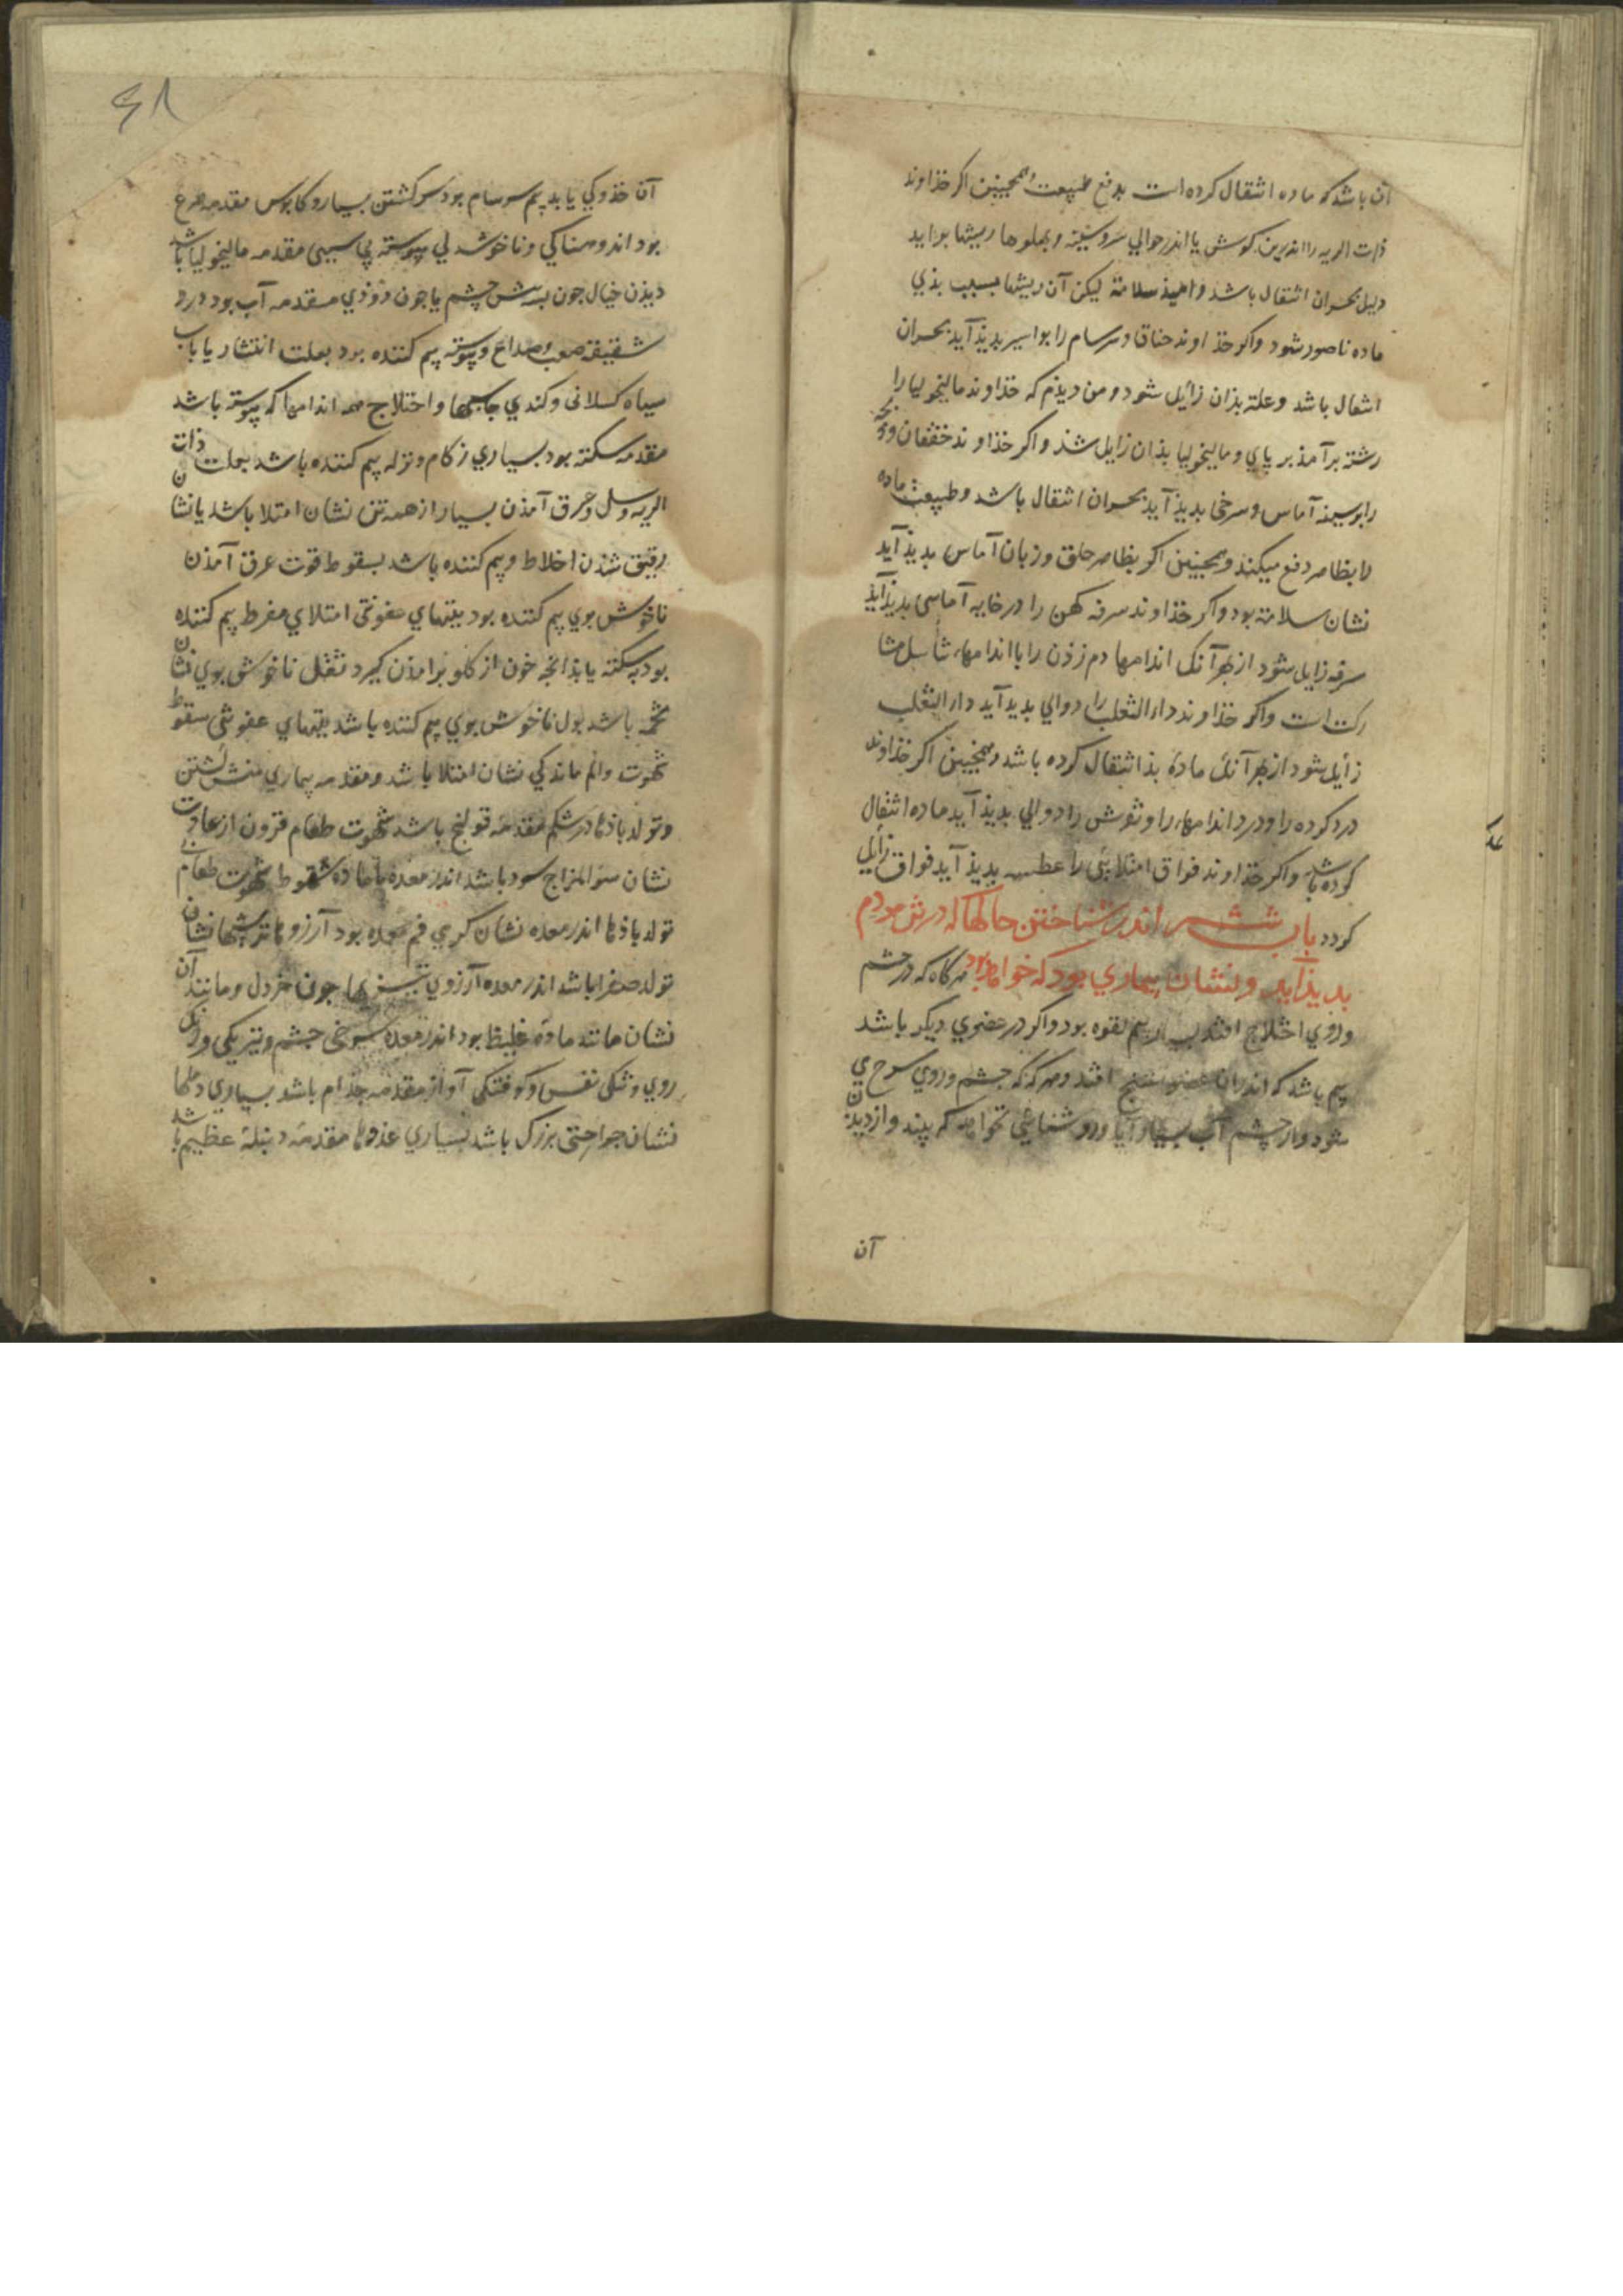 آن باشد که ماده انتقال کرده است بدفع طبیعت و همچنین اکر خذاوند
ذات الریه را اندر بن کوش یا اندر حوالي سر و سینه و پهلوها ریشها براید
دلیل بحران انتقال باشد و امیذ سلامة لیکن آن ریشها بسبب بذي
ماده ناصور شود واکر خذاوند خناق و سرسام را بواسیر پدیذ آید بحران
انتقال باشد و علة بذان زائل شود و من دیذم که خذاوند مالیخولیا را
رشته برآمذ بر پاي و مالیخولیا بذان زایل شذ واکر خذاوند خفقان
را بر سینه آماس و سرخی بدیذ آید بحران انتقال باشد و طبیعت ماده
را بظاهر دفع میکند و همچنین اکر بظاهر حلق و زبان آماس بدیذ آید
نشان سلامة بود و اکر خذاوند سرفه کهن را در خایه آماسی بدیذ آید
سرفه زایل شود از بهر آنک اندامها دم زذن را با اندامهاء تناسل مشا
رکت است واکر خذاوند داء الثعلب را دوالي بدید آید داء الثعلب
زائل شود از بهر آنک مادۀ بذ انتقال کرده باشد و همچنین اکر خذاوند
درد کرده را و درد اندامهاء را و نقرس را دوالي بدیذ آید ماده انتقال
کرده باشد واکر خذاوند فواق امتلایی را عطسه بدیذ آید فواق زائل
کردد باب ششم اندر شناختن حالها که در تن مردم
بدیذ آید و نشان بیماري بود که خواهد بود هرگاه که در چشم
و روي اختلاج افتد بسیار بیم لقوه بود واکر در عضوي دیکر باشد
بیم باشد که اندران عضو تشنج افتد و هر که که چشم و روي سرخ
شود و از چشم آب بسیار آید و روشنائي نخواهد که بیند و از دیدن
آن
٤٨
آن خذوکي یابد بیم سرسام بود سر کشتن بسیار و کابوس مقدمه صرع
بود اندوهناکي و ناخوشدلي پیوسته بي سببی مقدمه مالیخولیا باشد
دیذن خیال چون پشه پیش چشم یا چون دوذي مقدمه آب بود درد
شقیقه صعب و صداع پیوسته بیم کننده بود بعلت انتشار یا بآب
سیاه کسلانی و کندي حاسها و اختلاج همه اندامها که پیوسته باشد
مقدمه سکته بود بسیاري زکام و نزله بیم کننده باشد بعلت ذات
الریه و سل و عرق آمذن بسیار از همه تن نشان امتلا باشد یا نشان
رقیق شذن اخلاط و بیم کننده باشد بسقوط قوت عرق آمذن
ناخوش بوي بیم کننده بود بتبهاي عفونتی امتلاي مفرط بیم کننده
بود بسکته یا بذانجه خون از کلو برامذن کیرد ثفل ناخوش بوي نشان
تخمه باشد بول ناخوش بوي بیم کننده باشد بتبهاي عفونتی سقوط
شهوت و اندماندکي نشان امتلا باشد و مقدمه بیماري منش کشتن
و تولد باذها در شکم مقدمه قولنج باشد شهوت طعام فزون از عادت
نشان سوء المزاج سرد باشد اندر معده با ماده سقوط شهوت طعام
تولد باذها اندر معده نشان کرمي فم معده بود آرزوها ترشیها نشان
تولد صفرا باشد اندر معده آرزوي تیزیها جون خردل و مانند آن
نشان مانند مادۀ غلیظ بود اندر معده سرخی چشم و تیرکی
روي و تنکی نفس و کرفتکی آواز مقدمه جذام باشد بسیاري دملها
نشان جراحتی بزرک باشد بسیاري غدها مقدمه دبیلۀ عظیم باشد